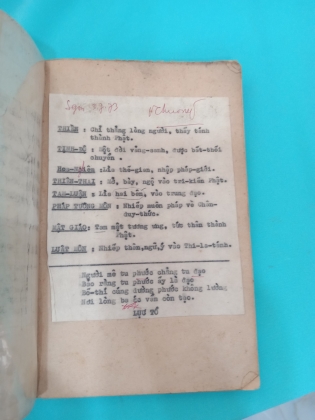 THIỀN : Chỉ thẳng lòng người, thấy tánh
thành Phật.
TỊNH-ĐỘ : Một đời vãng-sanh, được bất-thối
chuyển.
HOA-NGHIÊM : Lìa thế-gian, nhập pháp-giới.
THIÊN-THAI : Mở, bày, ngộ vào tri-kiến Phật.
TAM-LUẬN : Lìa hai bên, vào trung đạo.
PHÁP TƯỚNG MÔN : Nhiếp muôn pháp về Chân-
duy-thức.
MẬT GIÁO: Tam mật tương ưng, tức thân thành
Phật.
LUẬT MÔN : Nhiếp thân, ngữ, ý vào Thi-la-tánh.
Người mê tu phước chẳng tu đạo
Bảo rằng tu phước ấy là đạo
Bố-thí cúng dường phước không lường
Nơi lòng ba ác vẫn còn tạo.
LỤC TỔ